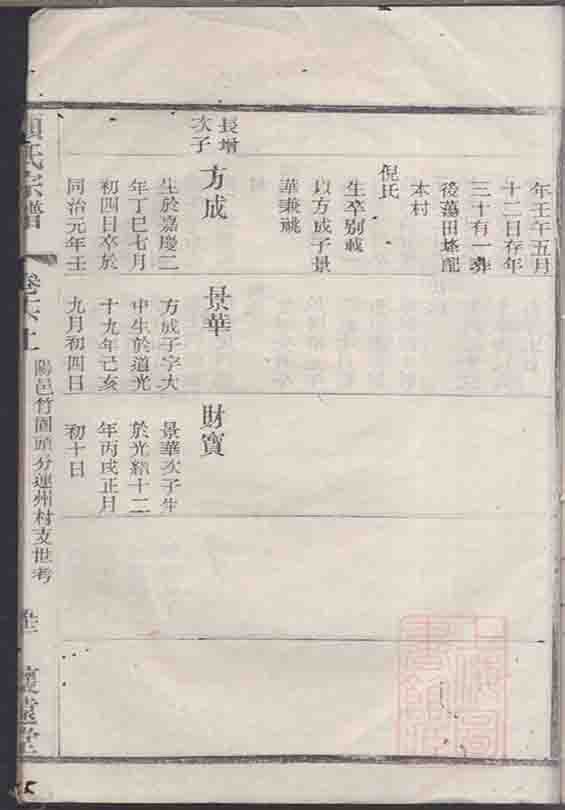 年壬午五月
十二日存年
三十有一葬
後蕩田塍配
本村
倪氏
生卒别載
以方成子景
華兼祧
長增
次子
方成
生於嘉慶二
年丁巳七月
初四日卒於
同治元年壬
景華
方成子字大
中生於道光
十九年己亥
九月初四日
財寶
景華次子生
於光緒十二
年丙戌正月
初十日
氏宗譜
卷
上
陽邑竹園頭分連州村支世考
懷遠堂